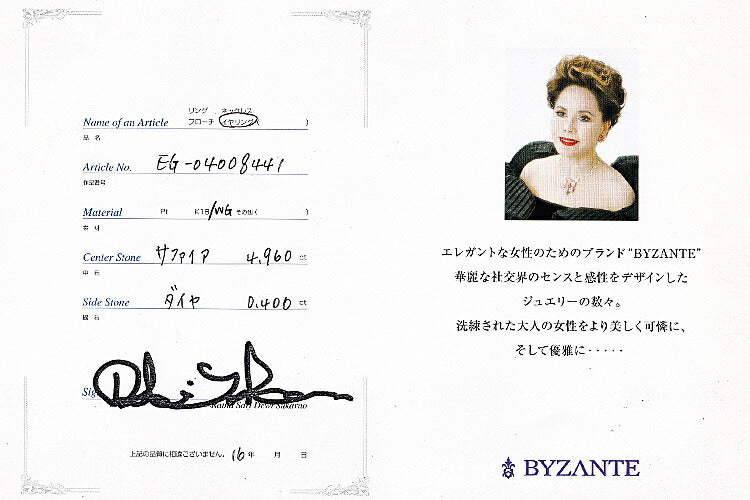 リング ネックレス
Name of an Article ブローチ イヤリング( )
品 名
Article No. EG-04008441
作品番号
Material Pt K18/WG その他( )
素 材
Center Stone サファイア 4.960 ct
中 石
Side Stone ダイヤ 0.400 ct
脇 石
Sig
Ratna Sari Dewi Sukarno
上記の品質に相違ございません。 16年 月 日
エレガントな女性のためのブランド“BYZANTE”
華麗な社交界のセンスと感性をデザインした
ジュエリーの数々。
洗練された大人の女性をより美しく可憐に、
そして優雅に・・・・・
BYZANTE